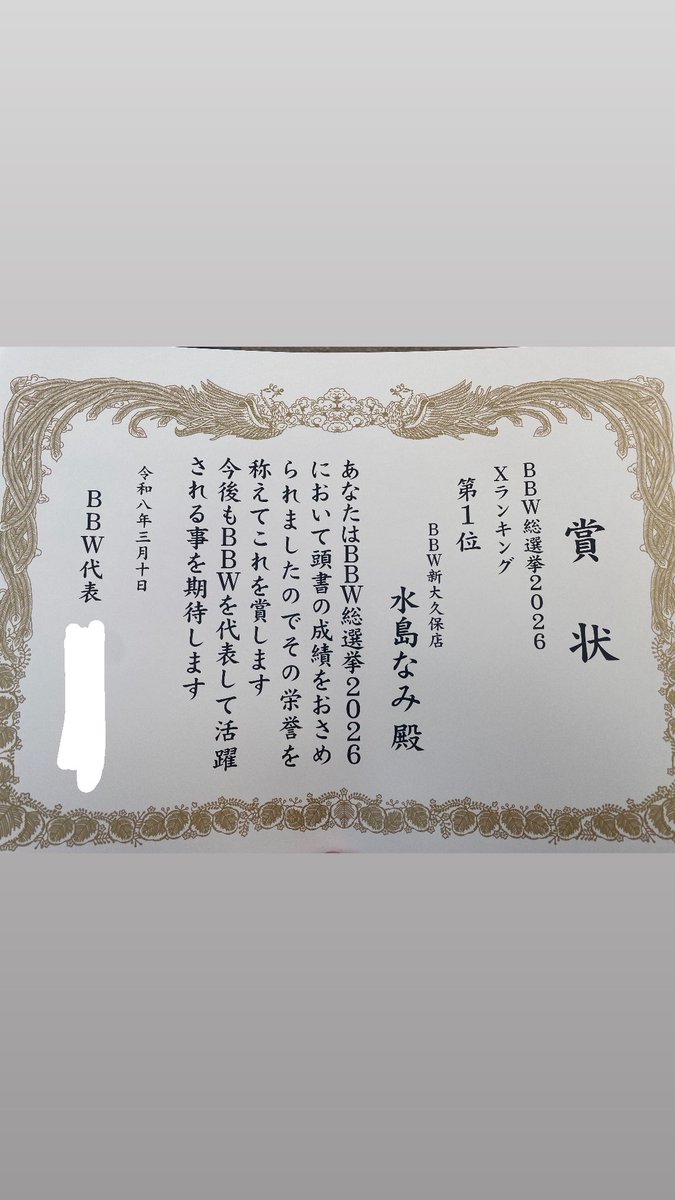 賞状
BBW総選挙2026
Xランキング
第1位
BBW新大久保店
水島なみ殿
あなたはBBW総選挙2026
において頭書の成績をおさめ
られましたのでその栄誉を
称えてこれを賞します
今後もBBWを代表して活躍
される事を期待します
令和八年三月十日
BBW代表